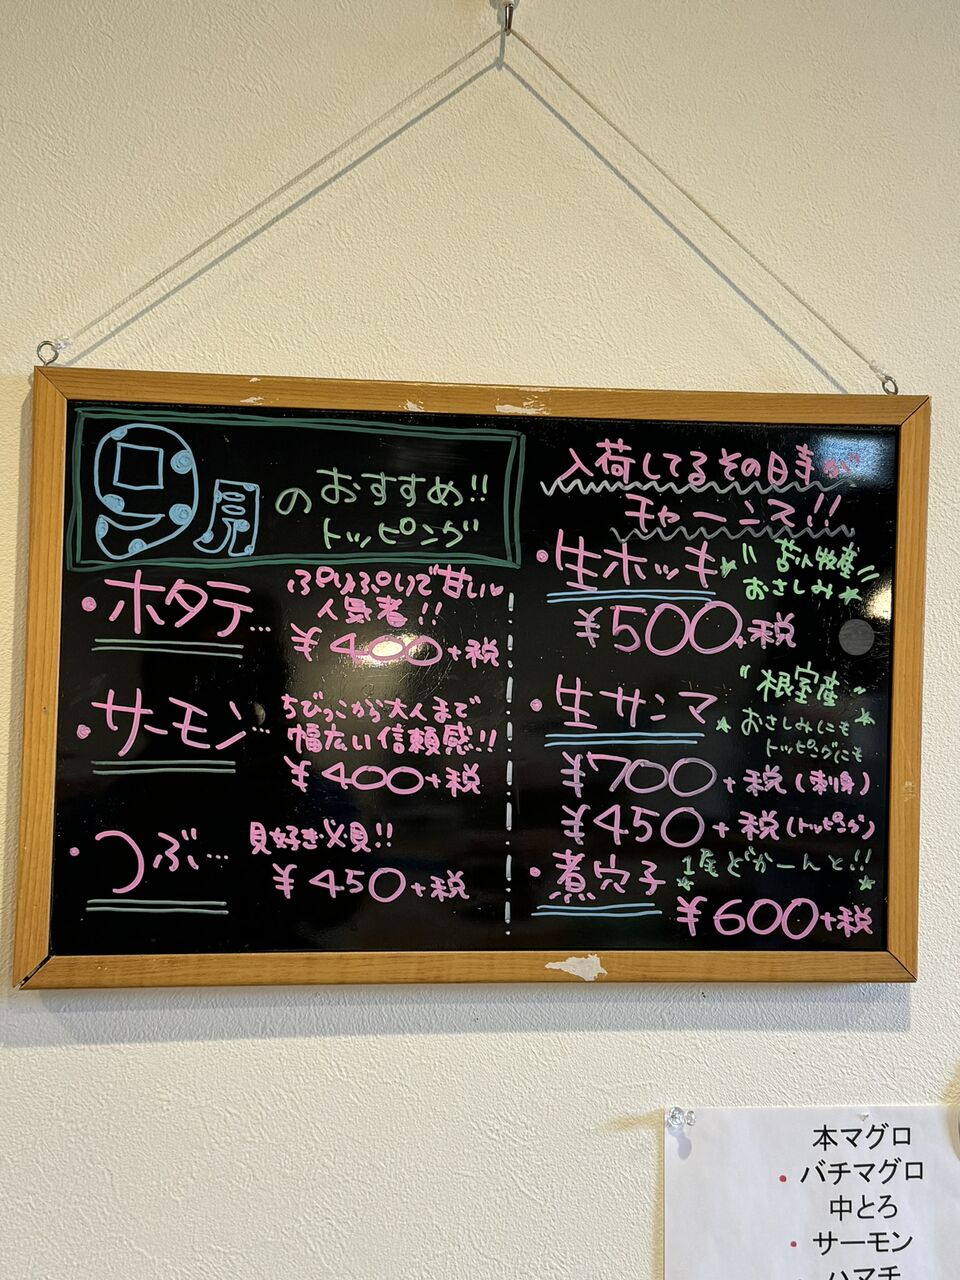 9月のおすすめ!!
トッピング
・ホタテ…
ぷりぷりで甘い
人気者!!
¥400+税
・サーモン…
ちびっこから大人まで
幅広い信頼感!!
¥400+税
・つぶ…
貝好き必見!!
¥450+税
入荷してるその日寺が
チャーンス!!
・生ホッキ
"苫小牧産"
おさしみ★
¥500+税
・生サンマ
"根室産"
★おさしみにも★
トッピングにも
¥700+税(刺身)
¥450+税(トッピング)
・煮穴子
1尾どかーんと!!
¥600+税
本マグロ
・バチマグロ
中とろ
・サーモン
ハマチ